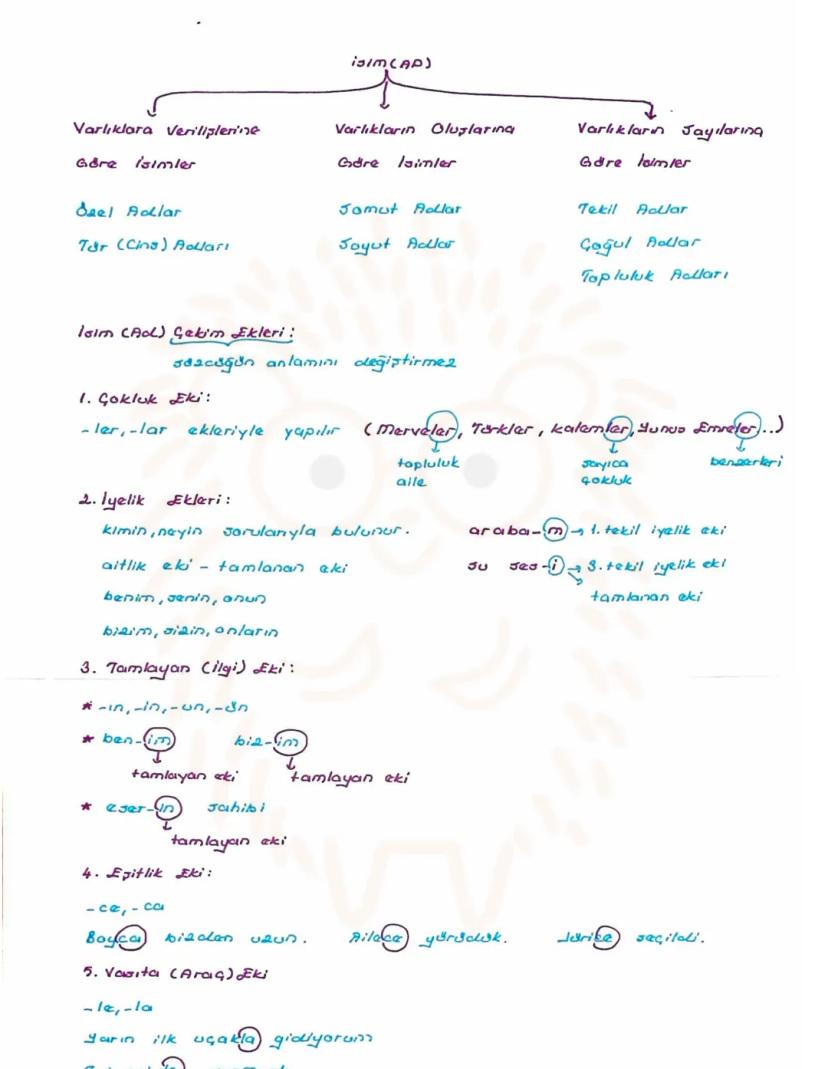 isim (AD)
Varlıklara Verilişlerine Göre İsimler
Özel Adlar
Tür (Cins) Adları
Varlıkların Oluşlarına Göre İsimler
Somut Adlar
Soyut Adlar
Varlıkların Sayılarına Göre İsimler
Tekil Adlar
Çoğul Adlar
Topluluk Adları
İsim (Ad) Çekim Ekleri:
sözcüğün anlamını değiştirmez
1. Çokluk Eki:
-ler, -lar ekleriyle yapılır (Merveler, Türkler, kalemler, Yunus Emreler...)
topluluk aile
sayıca çokluk
benzerleri
2. İyelik Ekleri:
kimin, neyin sorularıyla bulunur. araba-m → 1. tekil iyelik eki
aitlik eki - tamlanan eki su ses-i → 3. tekil iyelik eki
benim, senin, onun tamlanan eki
bizim, sizin, onların
3. Tamlayan (İlgi) Eki:
* -ın, -in, -un, -ün
* ben-im biz-im
tamlayan eki tamlayan eki
* eser-in sahibi
tamlayan eki
4. Eşitlik Eki:
-ce, -ca
Boyca bizden uzun. Ailece yürüdük. Jürice seçildi.
5. Vasıta (Araç) Eki
-le, -la
Yarın ilk uçakla gidiyorum